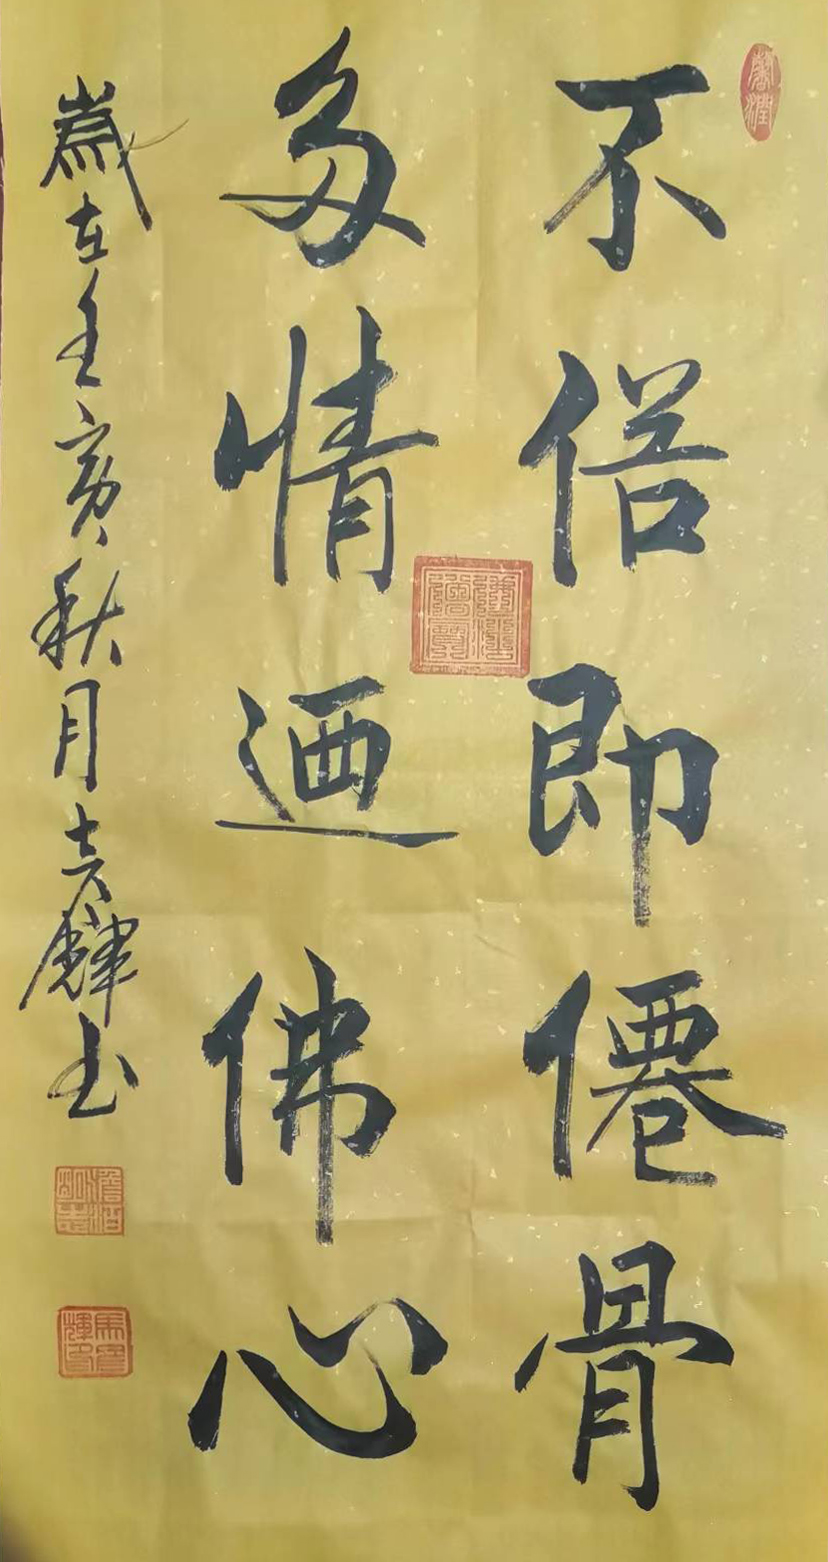 不俗即僊骨
多情迺佛心
歲在壬寅秋月 書